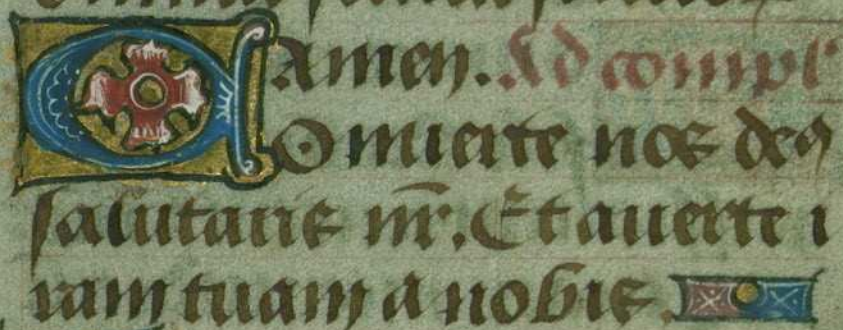 amen. Ad compl'
Conuerte nos deꝰ
salutaris nr̄. Et auerte i
ram tuam a nobis.